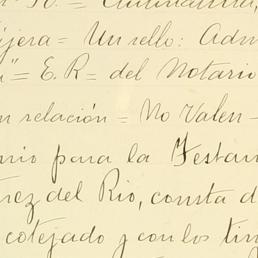 jera = Un sello: Adm
" = E. R = del Notario
n relación = No Valen -
nio para la Testam
rez del Rio, consta d
cotejado y con los tim